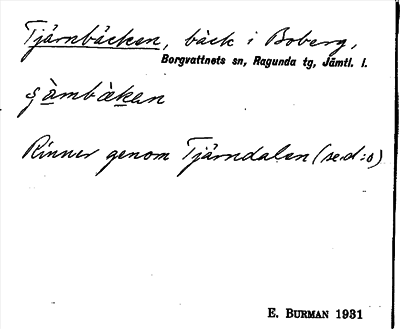 Tjärnbäcken, bäck i Boberg,
Borgvattnets sn, Ragunda tg, Jämtl. l.
Rinner genom Tjärndalen (se d:o)
E. BURMAN 1931